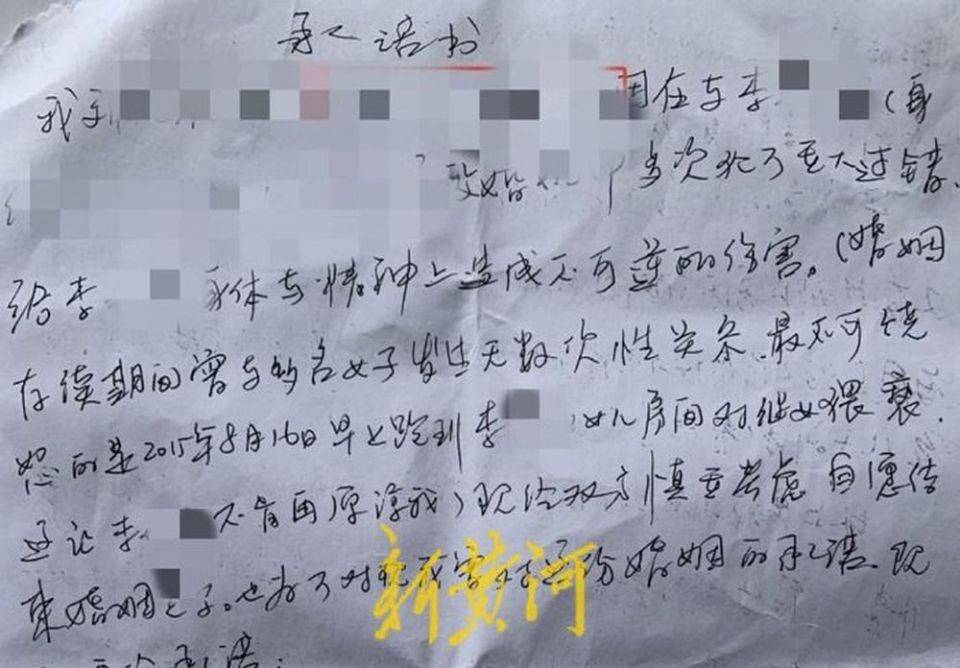 承诺书
我 因在与李 (身
婚 多次犯了重大过错、
给李 身体与精神上造成不可逆的伤害。(婚姻
存续期间曾与多名女子发生无数次性关系、最不可饶
恕的是2015年8月16日早上跑到李 女儿房间对继女猥亵.
这让李 不肯再原谅我)现经双方慎重考虑自愿结
束婚姻 。也为了对 婚姻的承诺 现
承诺:
新黄河